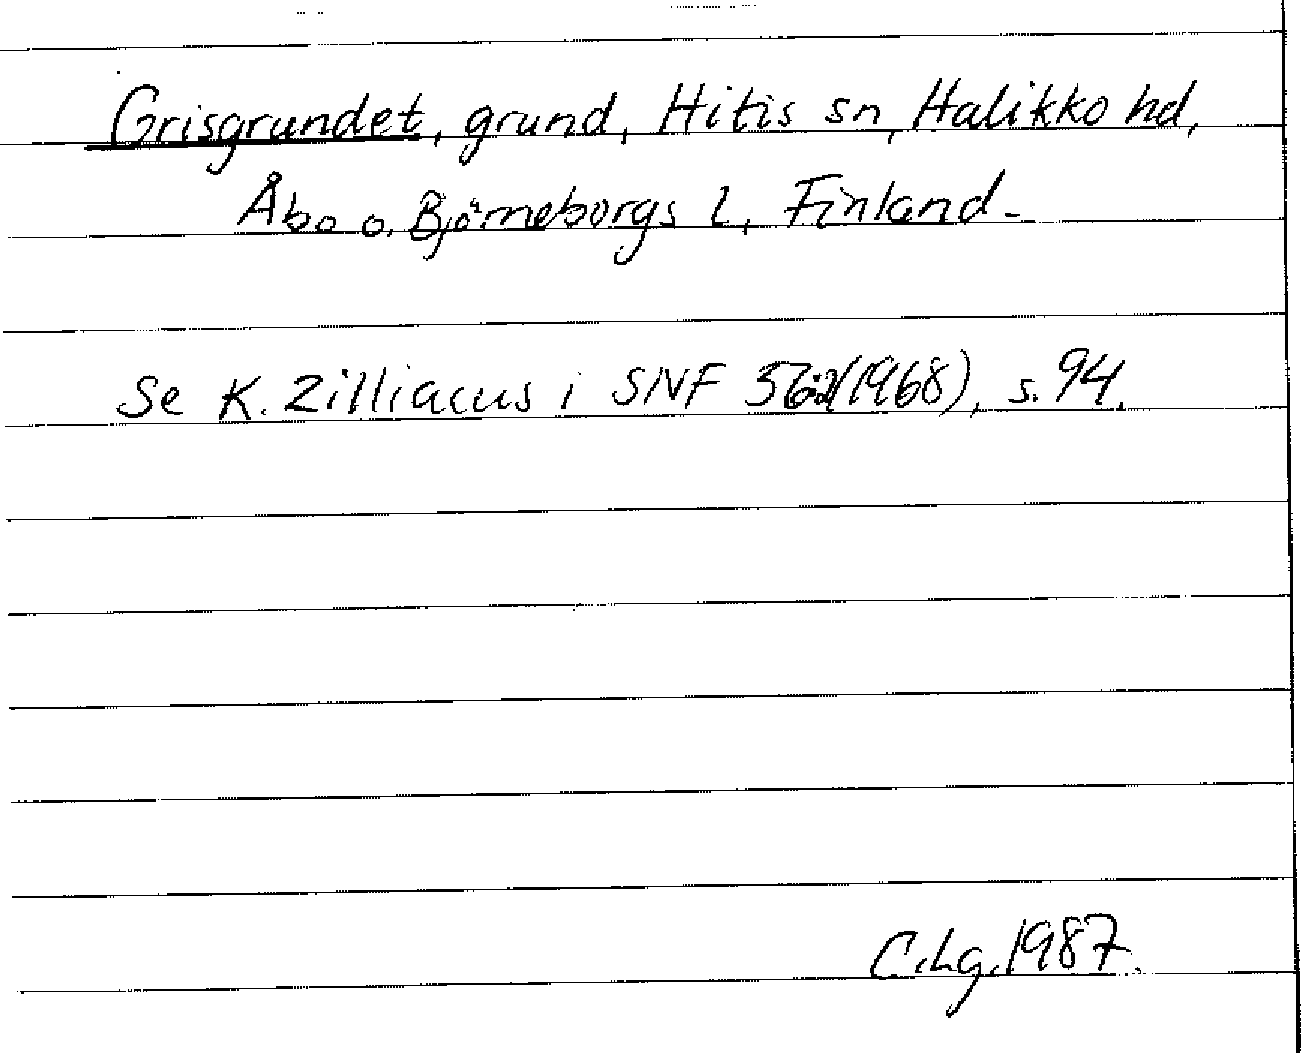 Grisgrundet, grund, Hitis sn, Halikko hd,
Åbo o. Björneborgs l, Finland.
Se K. Zilliacus i SNF 56:2(1968), s. 94.
C.Lg. 1987.